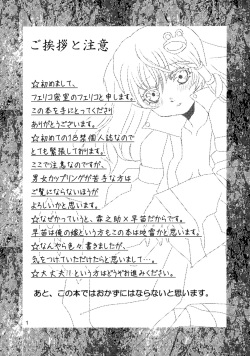 ご挨拶と注意
☆初めまして、
フェリコ密室のフェリコと申します。
この本を手にとってくださり
ありがとうございます。
☆初めての18禁個人誌なので
とても緊張しております。
ここで注意なのですが、
男女カップリングが苦手な方は
ご覧にならないほうが
よろしいかと思います。
☆なぜかっていうと、霖之助×早苗だからです。
早苗は俺の嫁という方もこの本は地雷かと思います。
☆なんやら色々書きましたが、
気をつけていただけたらと思いまして…。
☆大丈夫!!という方はどうぞお進みください。
あと、この本ではおかずにはならないと思います。